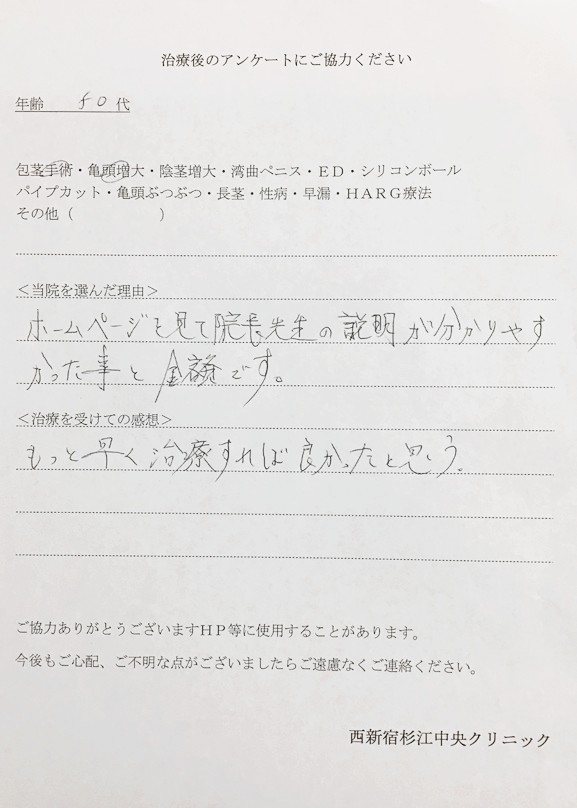 治療後のアンケートにご協力ください
年齢 50代
包茎手術・亀頭増大・陰茎増大・湾曲ペニス・ED・シリコンボール
パイプカット・亀頭ぶつぶつ・長茎・性病・早漏・HARG療法
その他( )
<当院を選んだ理由>
ホームページを見て院長先生の説明が分かりやす
かった事と金額です。
<治療を受けての感想>
もっと早く治療すれば良かったと思う。
ご協力ありがとうございますHP等に使用することがあります。
今後もご心配、ご不明な点がございましたらご遠慮なくご連絡ください。
西新宿杉江中央クリニック